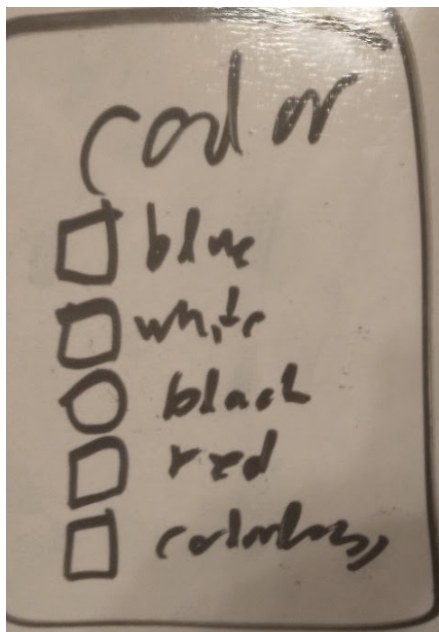 color
blue
white
black
red
colorless